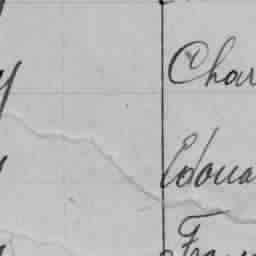 Char
Edoua
Fran